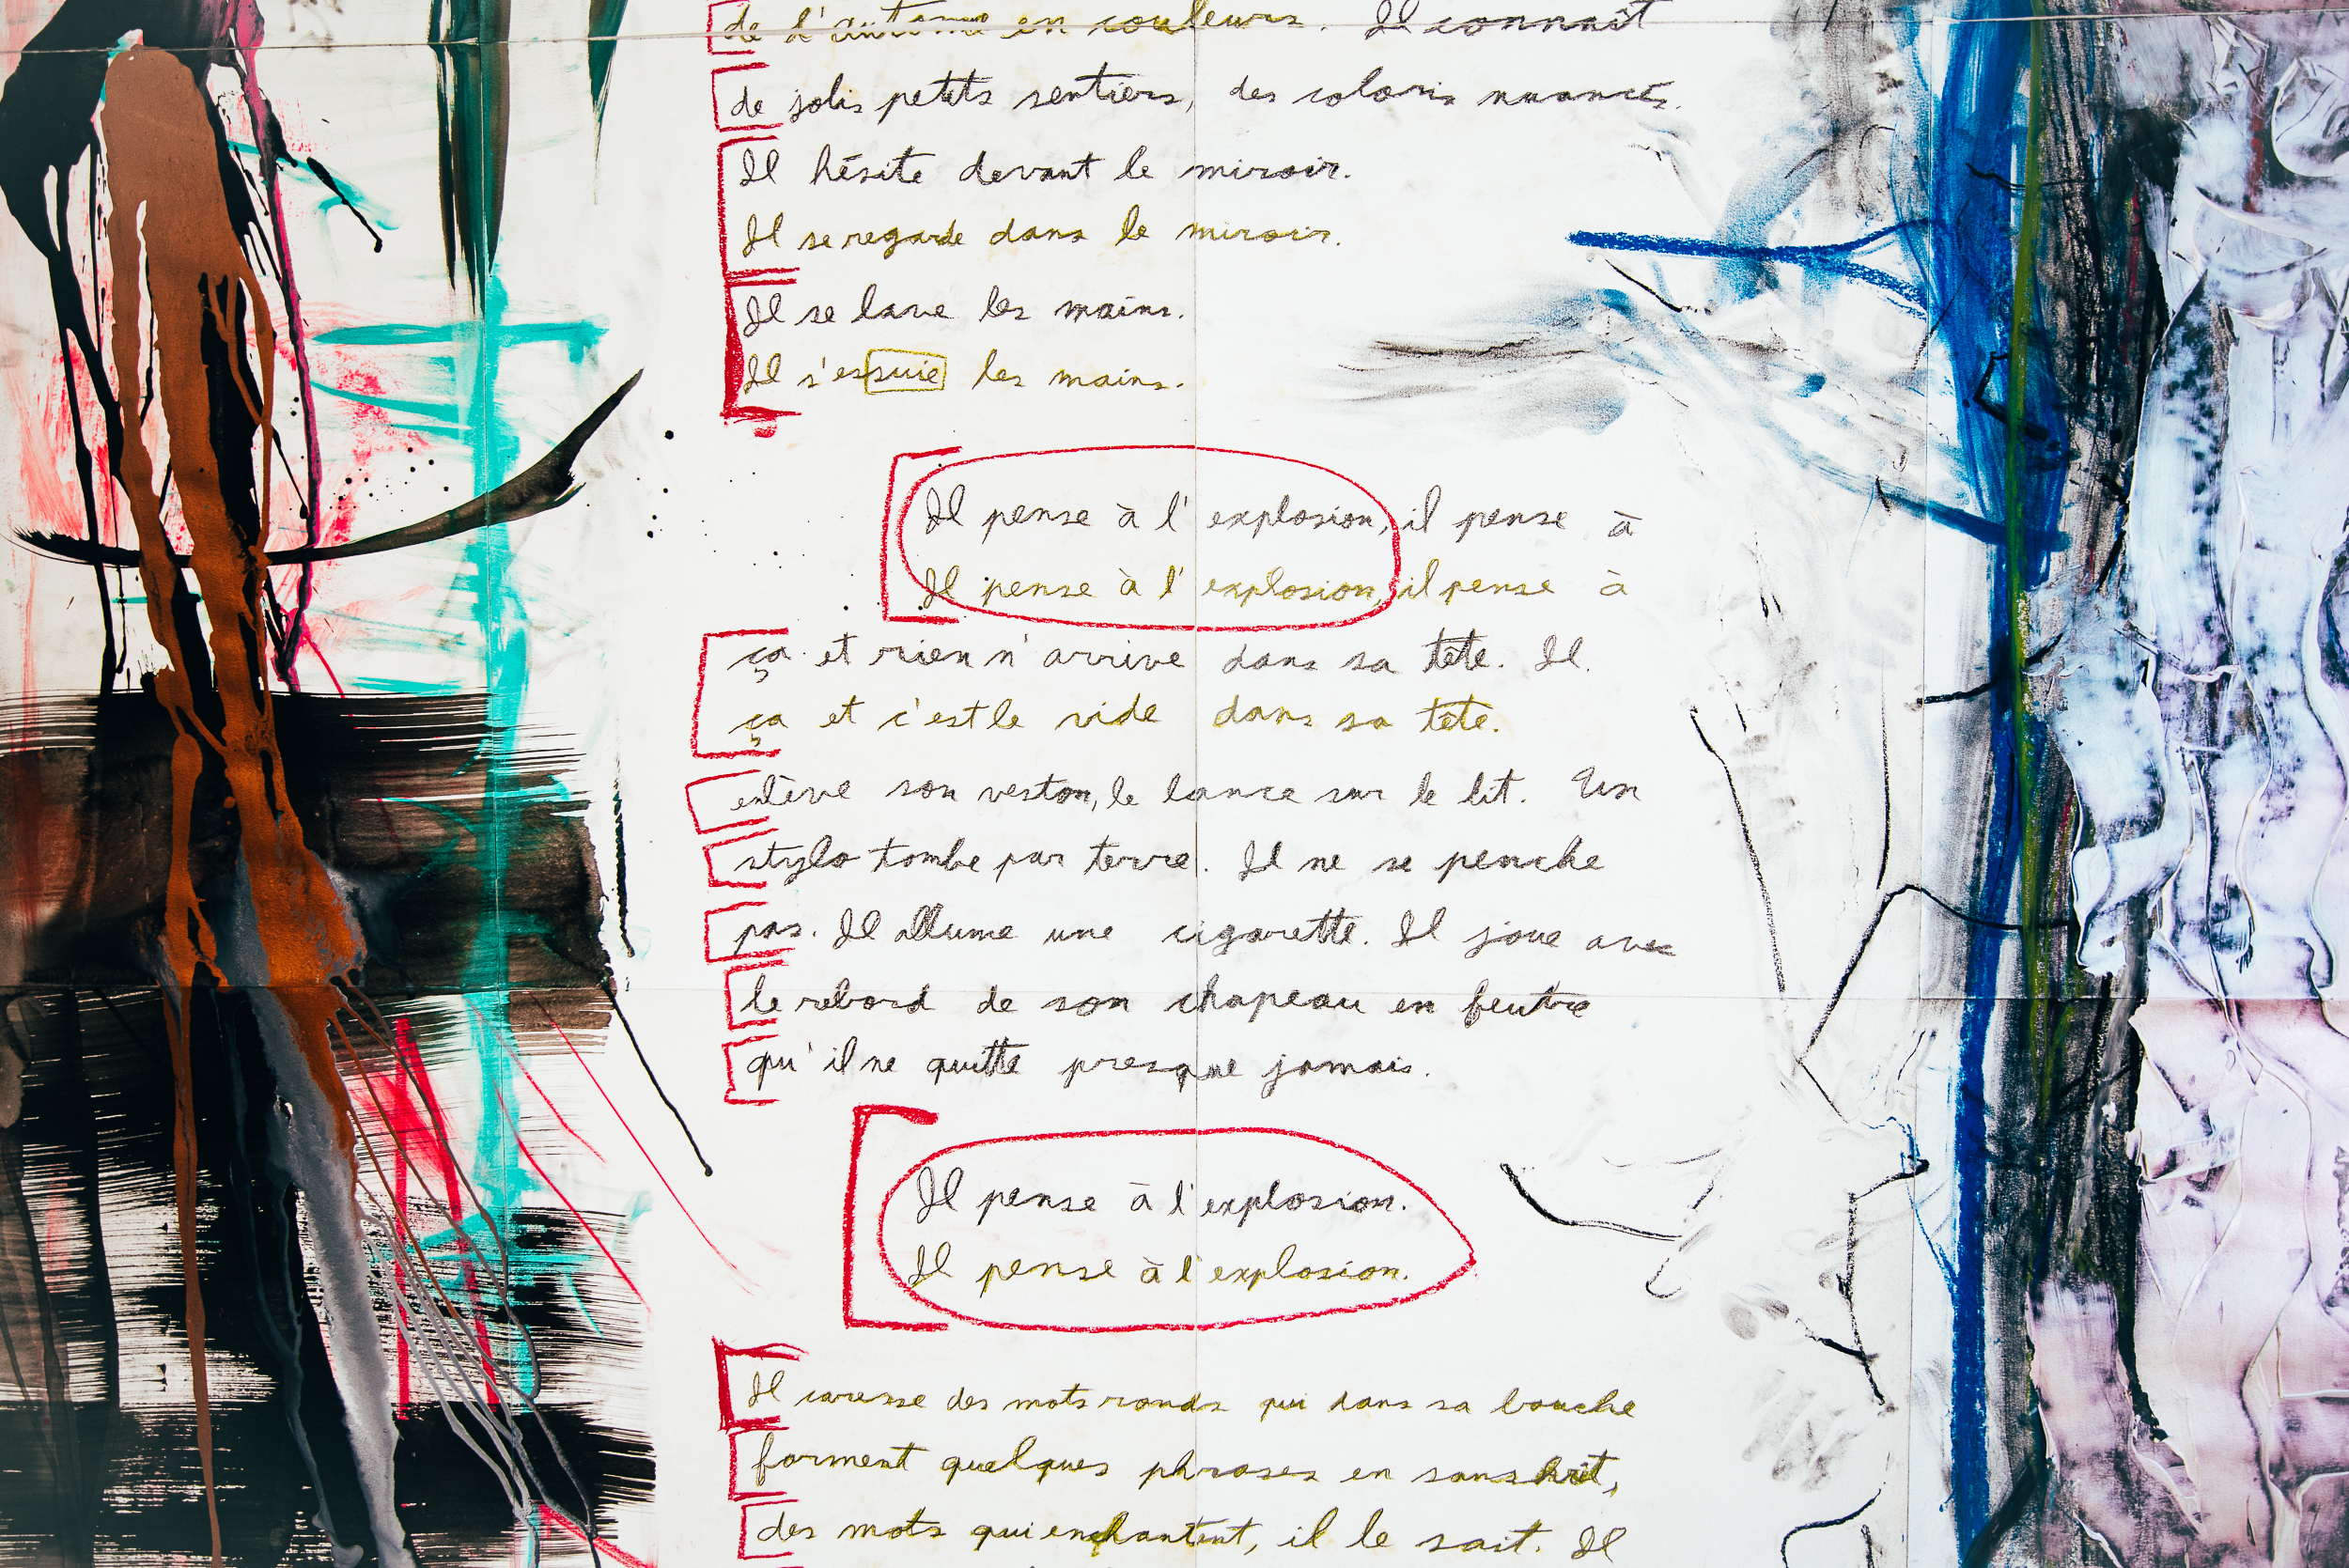 de l'automne en couleurs. Il connaît
de jolis petits sentiers, des coloris nuancés.
Il hésite devant le miroir.
Il se regarde dans le miroir.
Il se lave les mains.
Il s'essuie les mains.
Il pense à l'explosion, il pense à
Il pense à l'explosion, il pense à
ça et rien n'arrive dans sa tête. Il.
ça et c'est le vide dans sa tête.
enlève son veston, le lance sur le lit. Un
stylo tombe par terre. Il ne se penche
pas. Il allume une cigarette. Il joue avec
le rebord de son chapeau en feutre
qu'il ne quitte presque jamais.
Il pense à l'explosion.
Il pense à l'explosion.
Il caresse des mots ronds qui dans sa bouche
forment quelques phrases en sanskrit,
des mots qui enchantent, il le sait. Il